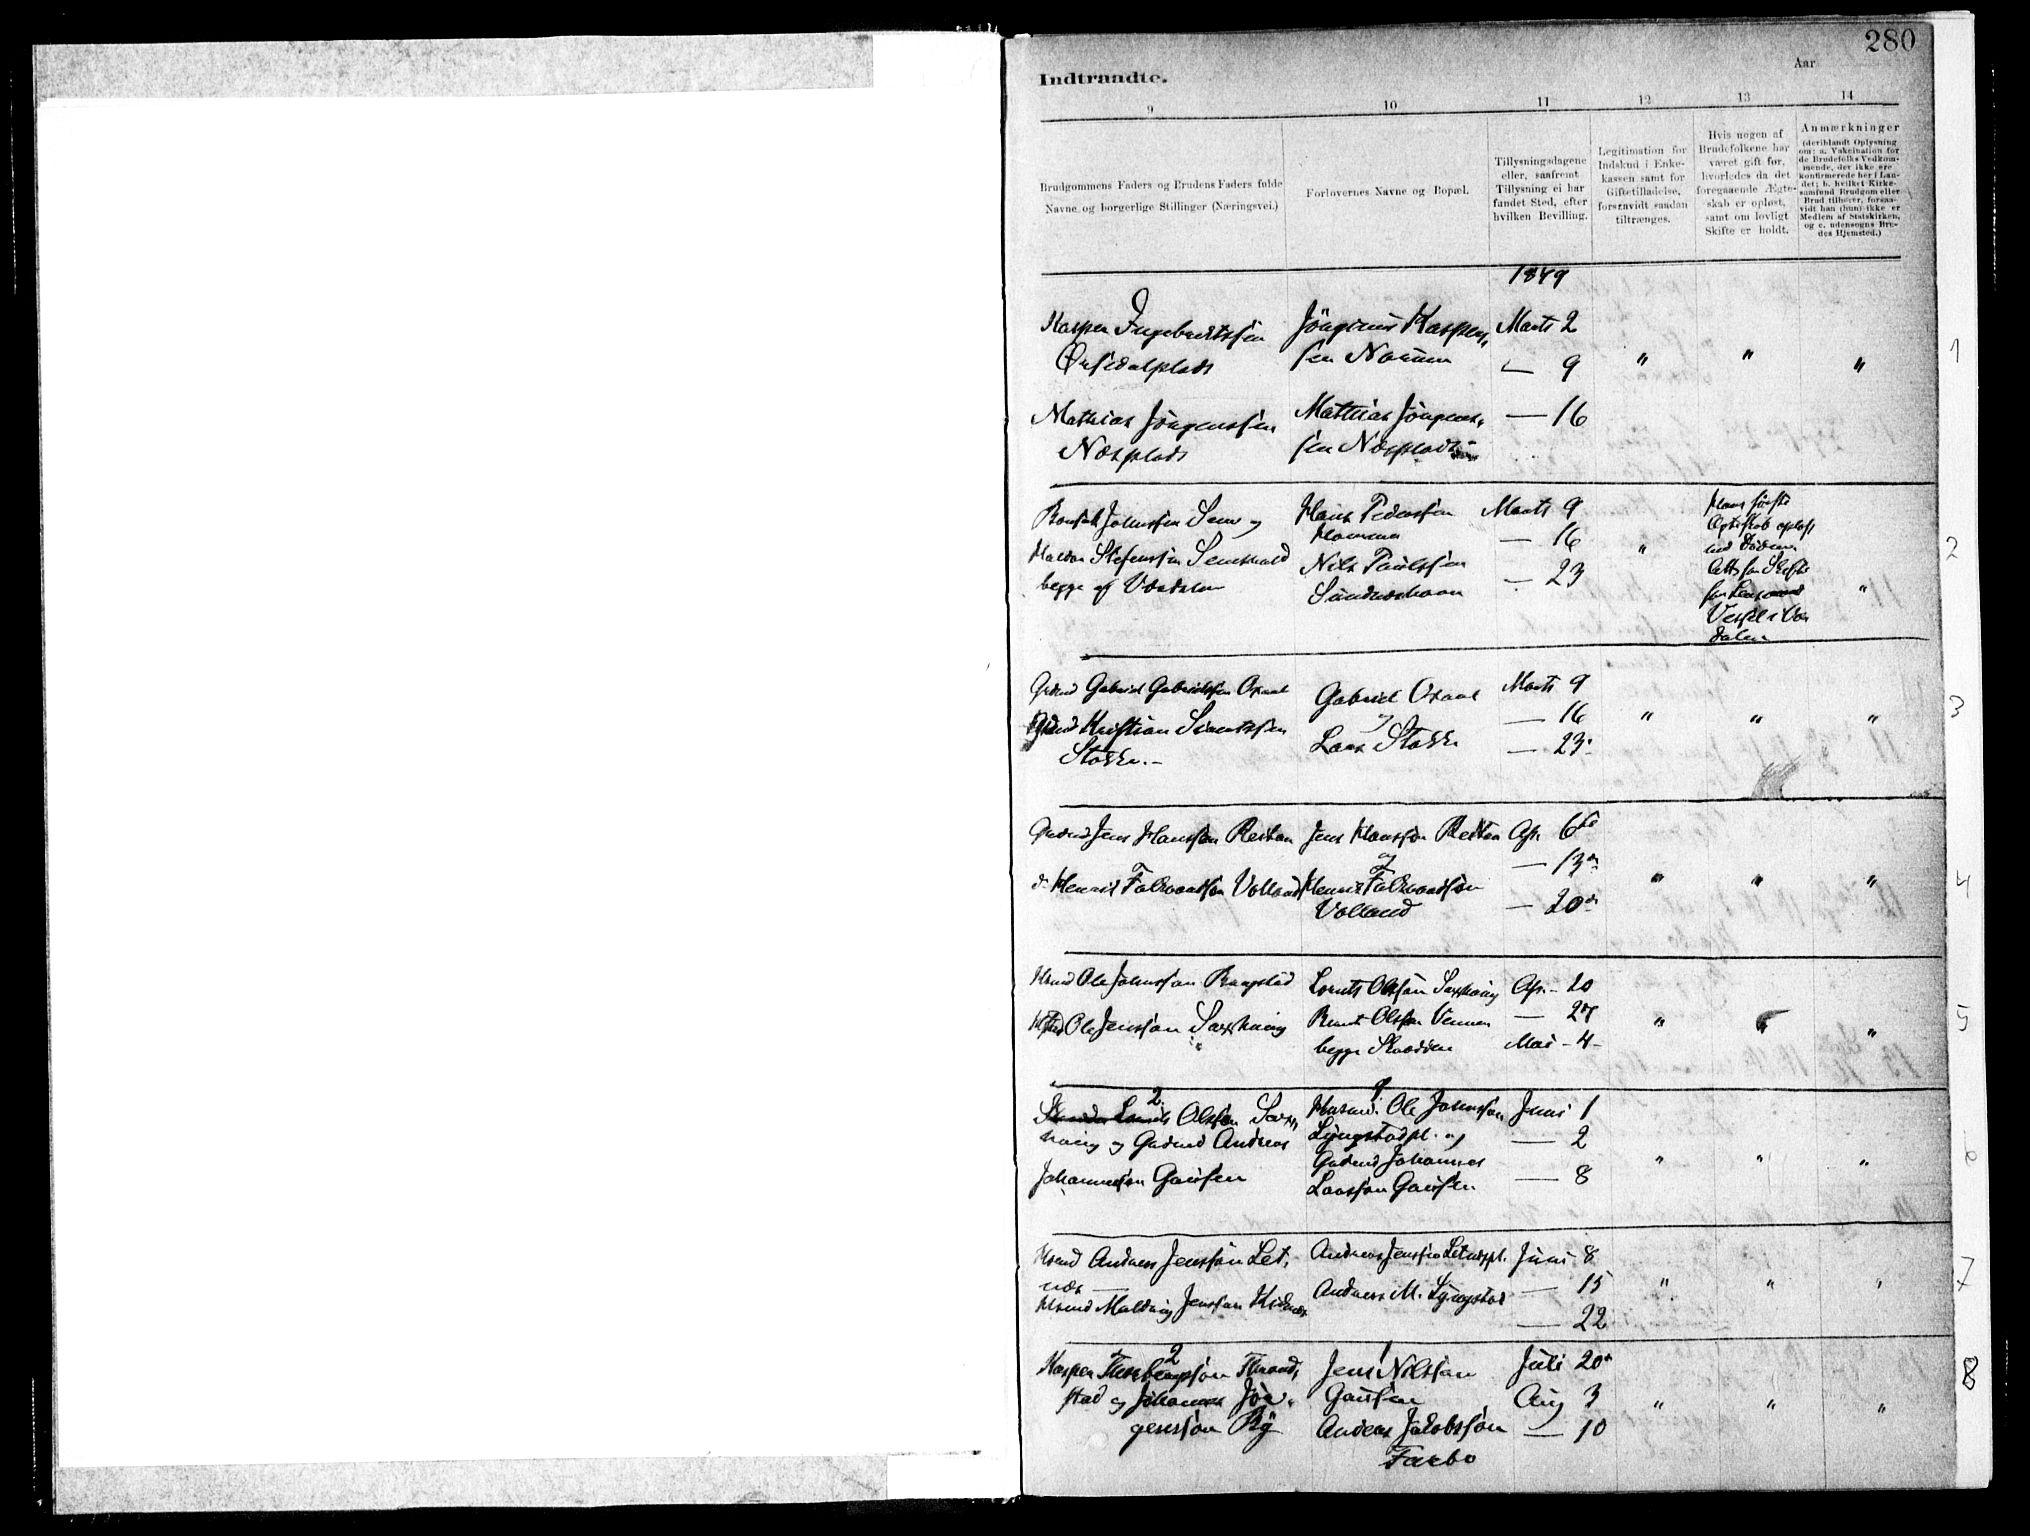 280
Aar
Indtraadte.
9 10 11 12 13 14
Brudgommens Faders og Brudens Faders fulde
Navne og borgerlige Stillinger (Næringsvei.)
Forlovernes Navne og Bopæl.
Tillysningsdagene
eller, saafremt
Tillysning ei har
fundet Sted, efter
hvilken Bevilling.
Legitimation for
Indskud i Enke-
kassen samt for
Giftetilladelse,
forsaavidt saadan
tiltrænges.
Hvis nogen af
Brudefolkene har
været gift før,
hvorledes da det
foregaaende Ægte-
skab er opløst,
samt om lovligt
Skifte er holdt.
Anmærkninger
(deriblandt Oplysning
om: a. Vakcination for
de Brudefolks Vedkom-
mende, der ikke ere
konfirmerede her i Lan-
det; b. hvilket Kirke-
samfund Brudgom eller
Brud tilhører, forsaa-
vidt han (hun) ikke er
Medlem af Statskirken,
og c. udensogns Bru-
des Hjemsted.)
1849
Kasper Ingebrectssen
Ørsedalplads
Mathias Jörgenssen
Næsplads
Jörginus Kaspers
sen Norum
Mathias Jörgens
sen Næsplads
Marts 2
— 9
— 16
" " "
1
Johnssen Sem og
Haldor Stefenssen
begge af Værdalen
Hans Pederssen
Hammer
Nils Paulssen
Sundneshavn
Marts 9
— 16
— 23
"
Hans første
Ægteskab opløst
ved Døden
Attest for Skifte
Vessel i Vær
dalen
"
2
Gabriel Gabrielssen Oxaal
Kristian
Stokke.-
Gabriel Oxaal
og
Lars Stokke
Marts 9
— 16
— 23
" " "
3
Grdmd Jens Hanssøn Restan
Henrik Falkvardsøn Volland
Jens Hanssøn Restan
og
Henrik Falkvardsøn
Volland
Ap. 6te
— 13de
— 20de
" " "
4
Hsmd Ole Johnssøn
Ole Jenssøn Saxhaug
Lorents Olssøn Saxhaug
Bernt Olssøn Vennes
begge
Ap. - 20
— 27
Mai - 4 -
" " "
5
2.
Olssøn Sax
haug og Gadmd Andreas
Johannessøn Gausen
1
Husmd. Ole Johnssøn
Lyngstadpl. og
Gadmd Johannes
Larssøn Gausen
Juni 1
— 2
— 8
" " "
6
Hsmd Andreas Jenssøn Let,
næs
Hsmd Jenssøn
Andreas Jenssøn Letnæspl.
Andreas M. Lyngstad
Juni 8
— 15
— 22
" " "
7
2
Kasper
stad og Johannes Jør-
genssøn By
1
Jens Nilssøn
Gausen
Andreas Jakobssøn
Færbo
Juli 20
Aug 3
— 10
" " "
8